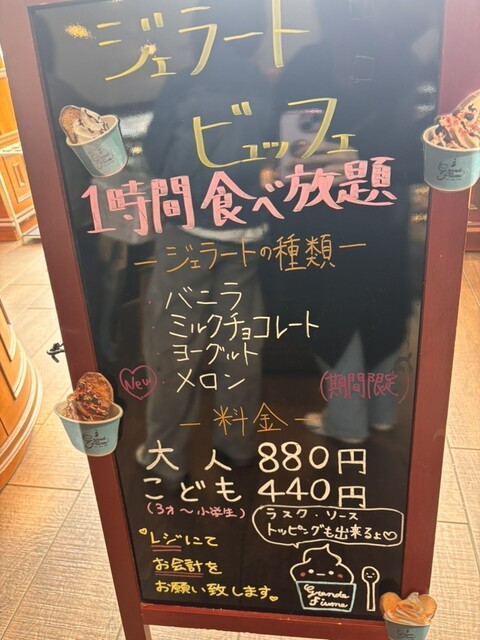 ジェラート
ビュッフェ
1時間食べ放題
ージェラートの種類ー
・バニラ
・ミルクチョコレート
・ヨーグルト
New ・メロン (期間限定)
ー料金ー
大人 880円
こども 440円
(3才〜小学生)
ラスク・ソース
トッピングも出来るよ♡
レジにて
お会計を
お願い致します。
Grande